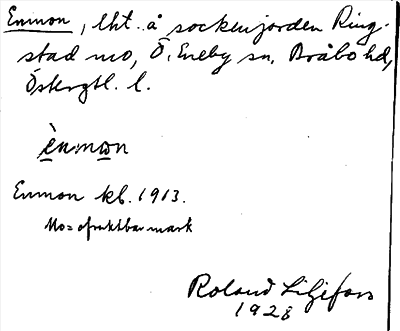 Enmon, lht. å sockenjorden Ring-
stad mo, Ö. Eneby sn, Bråbo hd,
Östergtl. l.
ènmωn
Enmon kb. 1913.
Mo = ofruktbar mark
Roland Liljefors
1928